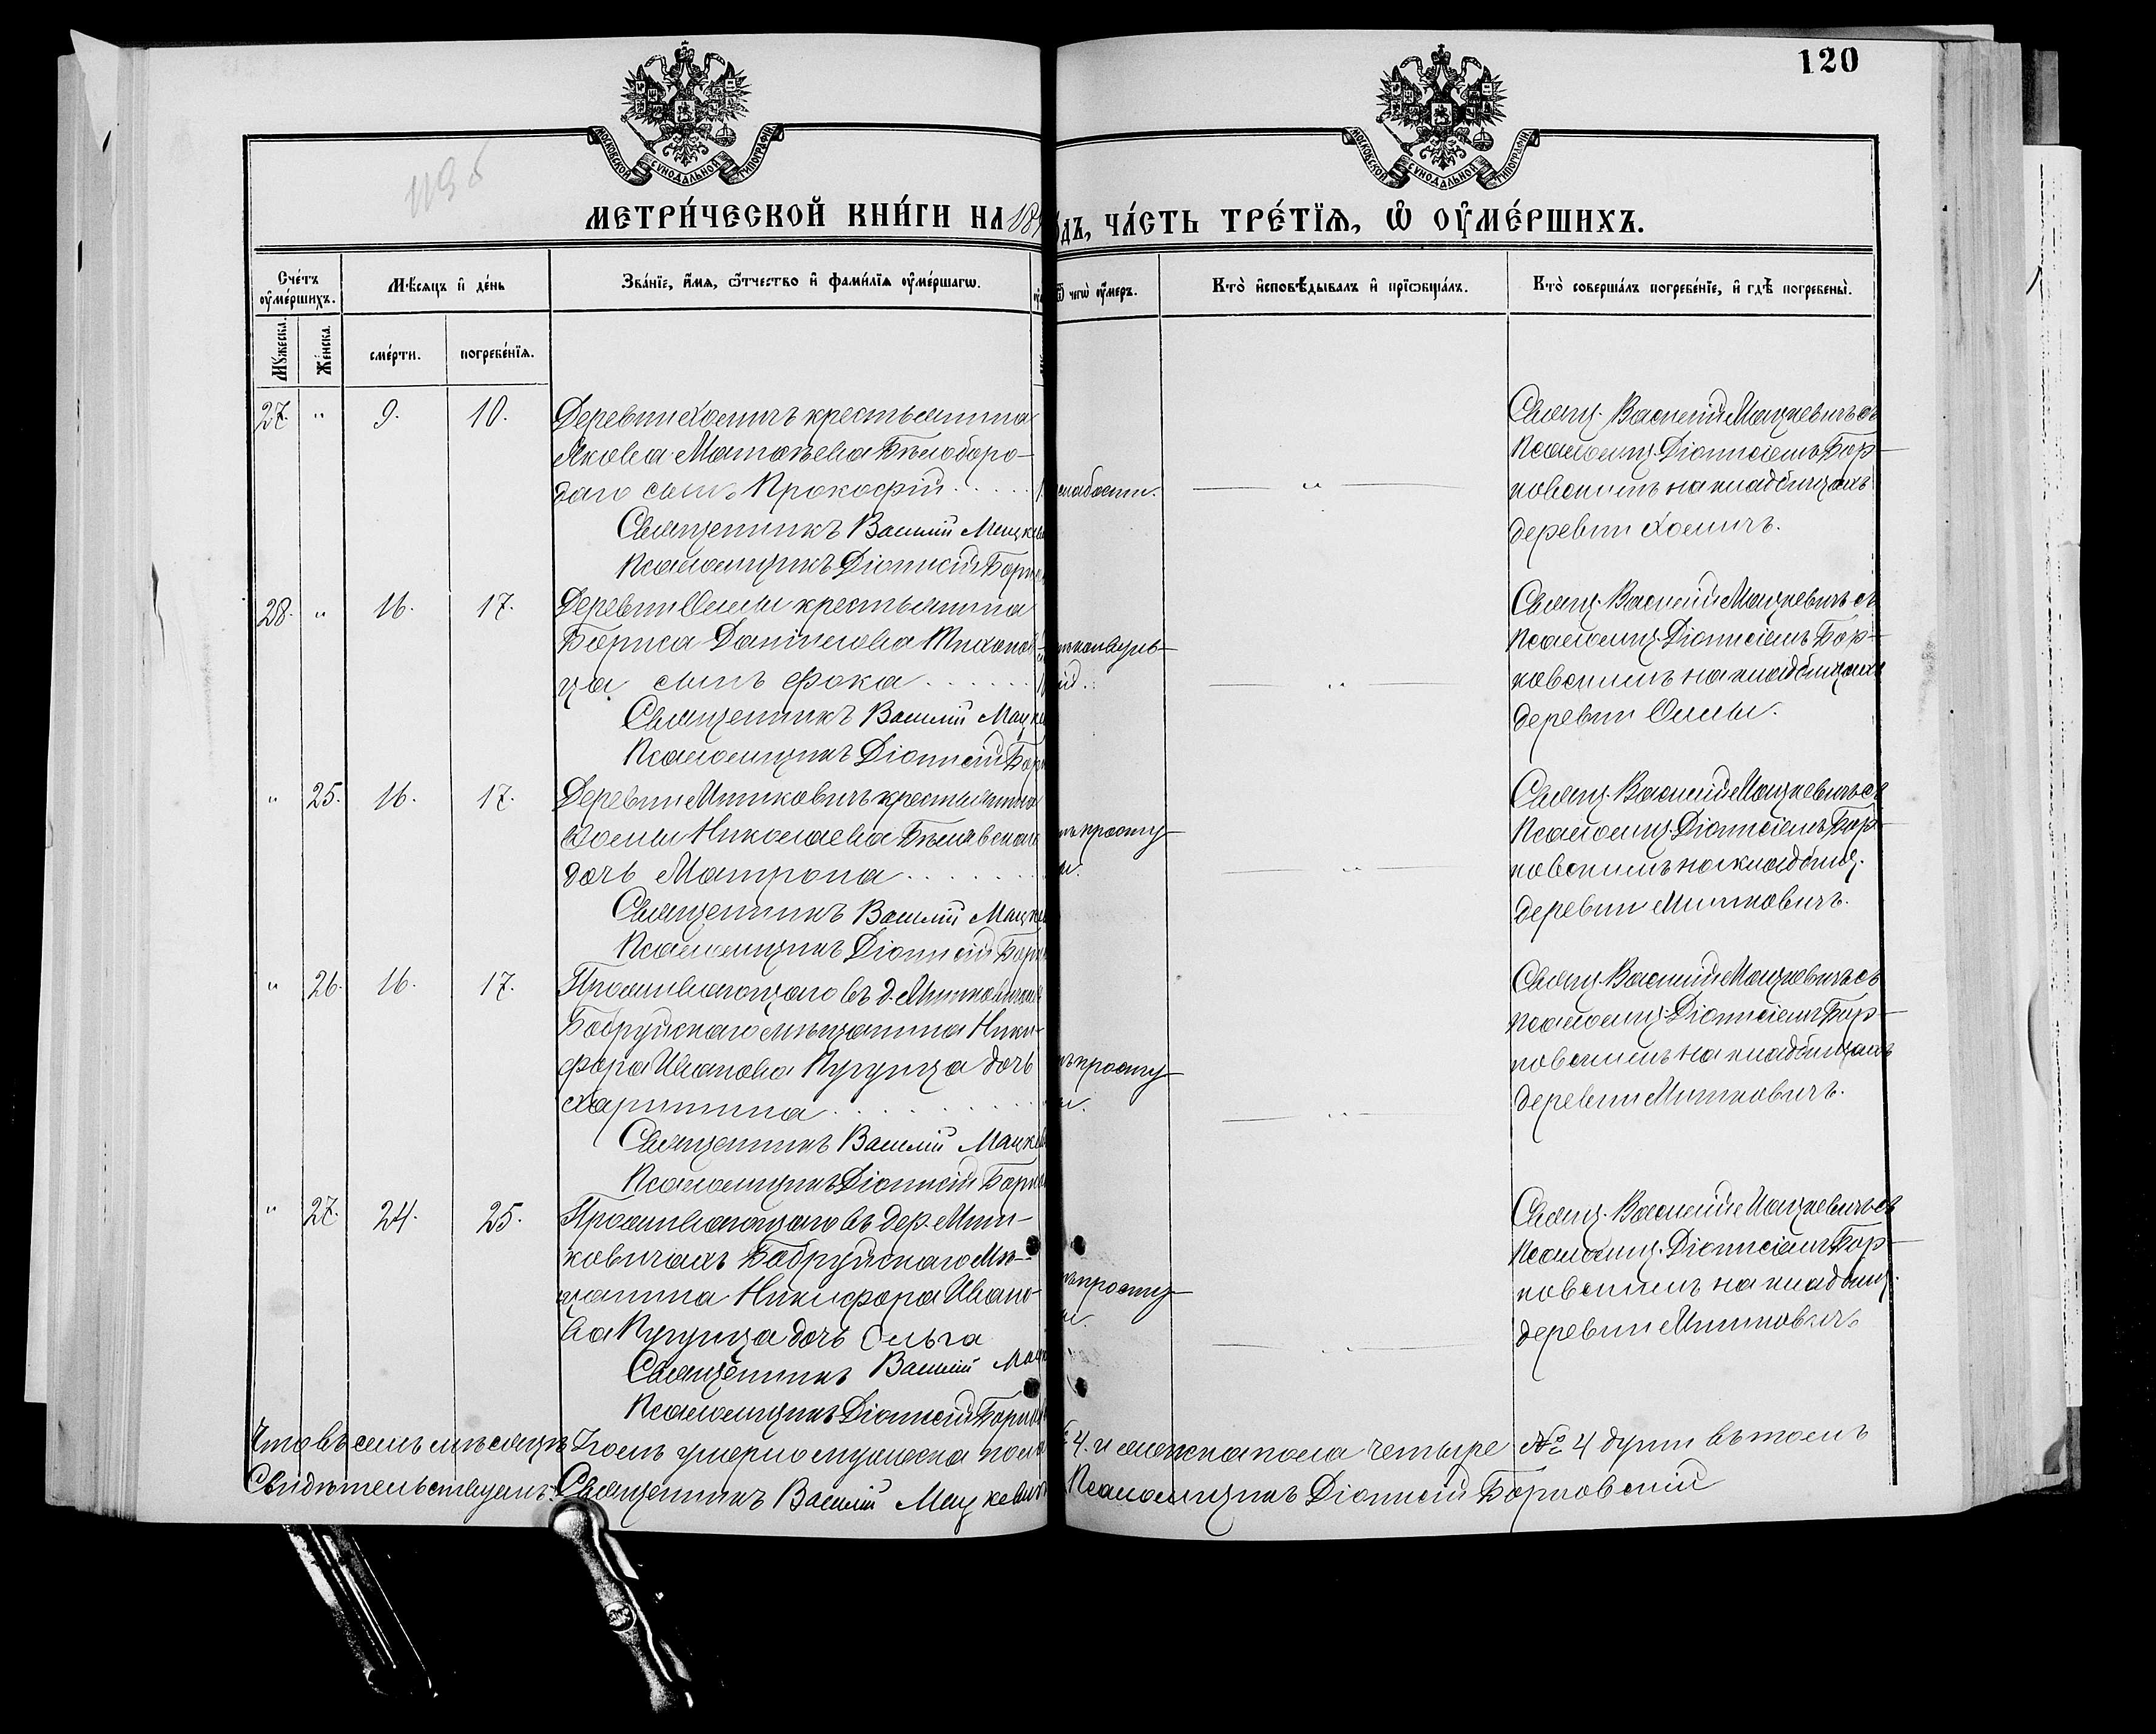 120
119 б
МОСКОВСКОЙ СУНОДАЛЬНОЙ ТИПОГРАФІИ
МОСКОВСКОЙ СУНОДАЛЬНОЙ ТИПОГРАФІИ
МЕТРИ́ЧЕСКОЙ КНИ́ГИ НА 18
ДЪ, ЧА́СТЬ ТРЕ́ТІѦ, Ѡ҆ ОУ҆МЕ́РШИХЪ.
Сче́тъ оу҆ме́ршихъ.
Мѣ́сяцъ и҆ де́нь
Зва́нїе, и҆́мя, ѻ҆́тчество и҆ фами́лїя оу҆ме́ршагѡ.
Ѿ чегѡ̀ оу҆́меръ.
Кто̀ и҆сповѣ́дывалъ и҆ прїѡбща́лъ.
Кто̀ соверша́лъ погребе́нїе, и҆ гдѣ̀ погребены̀.
Му́жеска.
Же́нска.
сме́рти.
погребе́нїя.
27. " 9. 10.
Деревни Хомичъ крестьянина
Якова Матѳѣева Бѣлоборо-
даго сынъ Прокофій
слабости.
Священникъ Василій Мацке
Псаломщикъ Діонисій Борк
Свящ. Василій Мацкевичъ съ
Псаломщ. Діонисіемъ Бор-
ковскимъ на кладбищахъ
деревни Хомичъ.
28. " 16. 17.
Деревни крестьянина
Бориса Даніилова Тихонов-
ца сынъ Фока
Священникъ Василій Мацке
Псаломщикъ Діонисій Бор
Свящ. Василій Мацкевичъ съ
Псаломщ. Діонисіемъ Бор-
ковскимъ на кладбищахъ
деревни
" 25. 16. 17.
Деревни Митковичъ крестьянина
Ѳомы Николаева Бѣлявскаго
дочь Матрона
простуды.
Священникъ Василій Мацке
Псаломщикъ Діонисій Борк
Свящ. Василій Мацкевичъ съ
Псаломщ. Діонисіемъ Бор-
ковскимъ на кладбищ.
деревни Митковичъ.
" 26. 16. 17.
Проживающаго въ д. Митковичахъ
Бобруйскаго мѣщанина Ники-
фора Иванова дочь
Харитина
просту
Священникъ Василій Мацкев
Псаломщикъ Діонисій Борк
Свящ. Василій Мацкевичъ съ
Псаломщ. Діонисіемъ Бор-
ковскимъ на кладбищахъ
деревни Митковичъ.
" 27. 24. 25.
Проживающаго въ дер. Мит-
ковичахъ Бобруйскаго мѣ-
щанина Никифора Ивано-
ва дочь Ольга
просту
Священникъ Василій Мацк
Псаломщикъ Діонисій Борк
Свящ. Василій Мацкевичъ съ
Псаломщ. Діонисіемъ Бор-
ковскимъ на кладбищ.
деревни Митковичъ
Что въ семъ мѣсяцѣ умерло мужеска пола
4. и женска пола четыре № 4 души въ томъ
Свидѣтельствуемъ: Священникъ Василій Мацкевичъ
Псаломщикъ Діонисій Борковскій